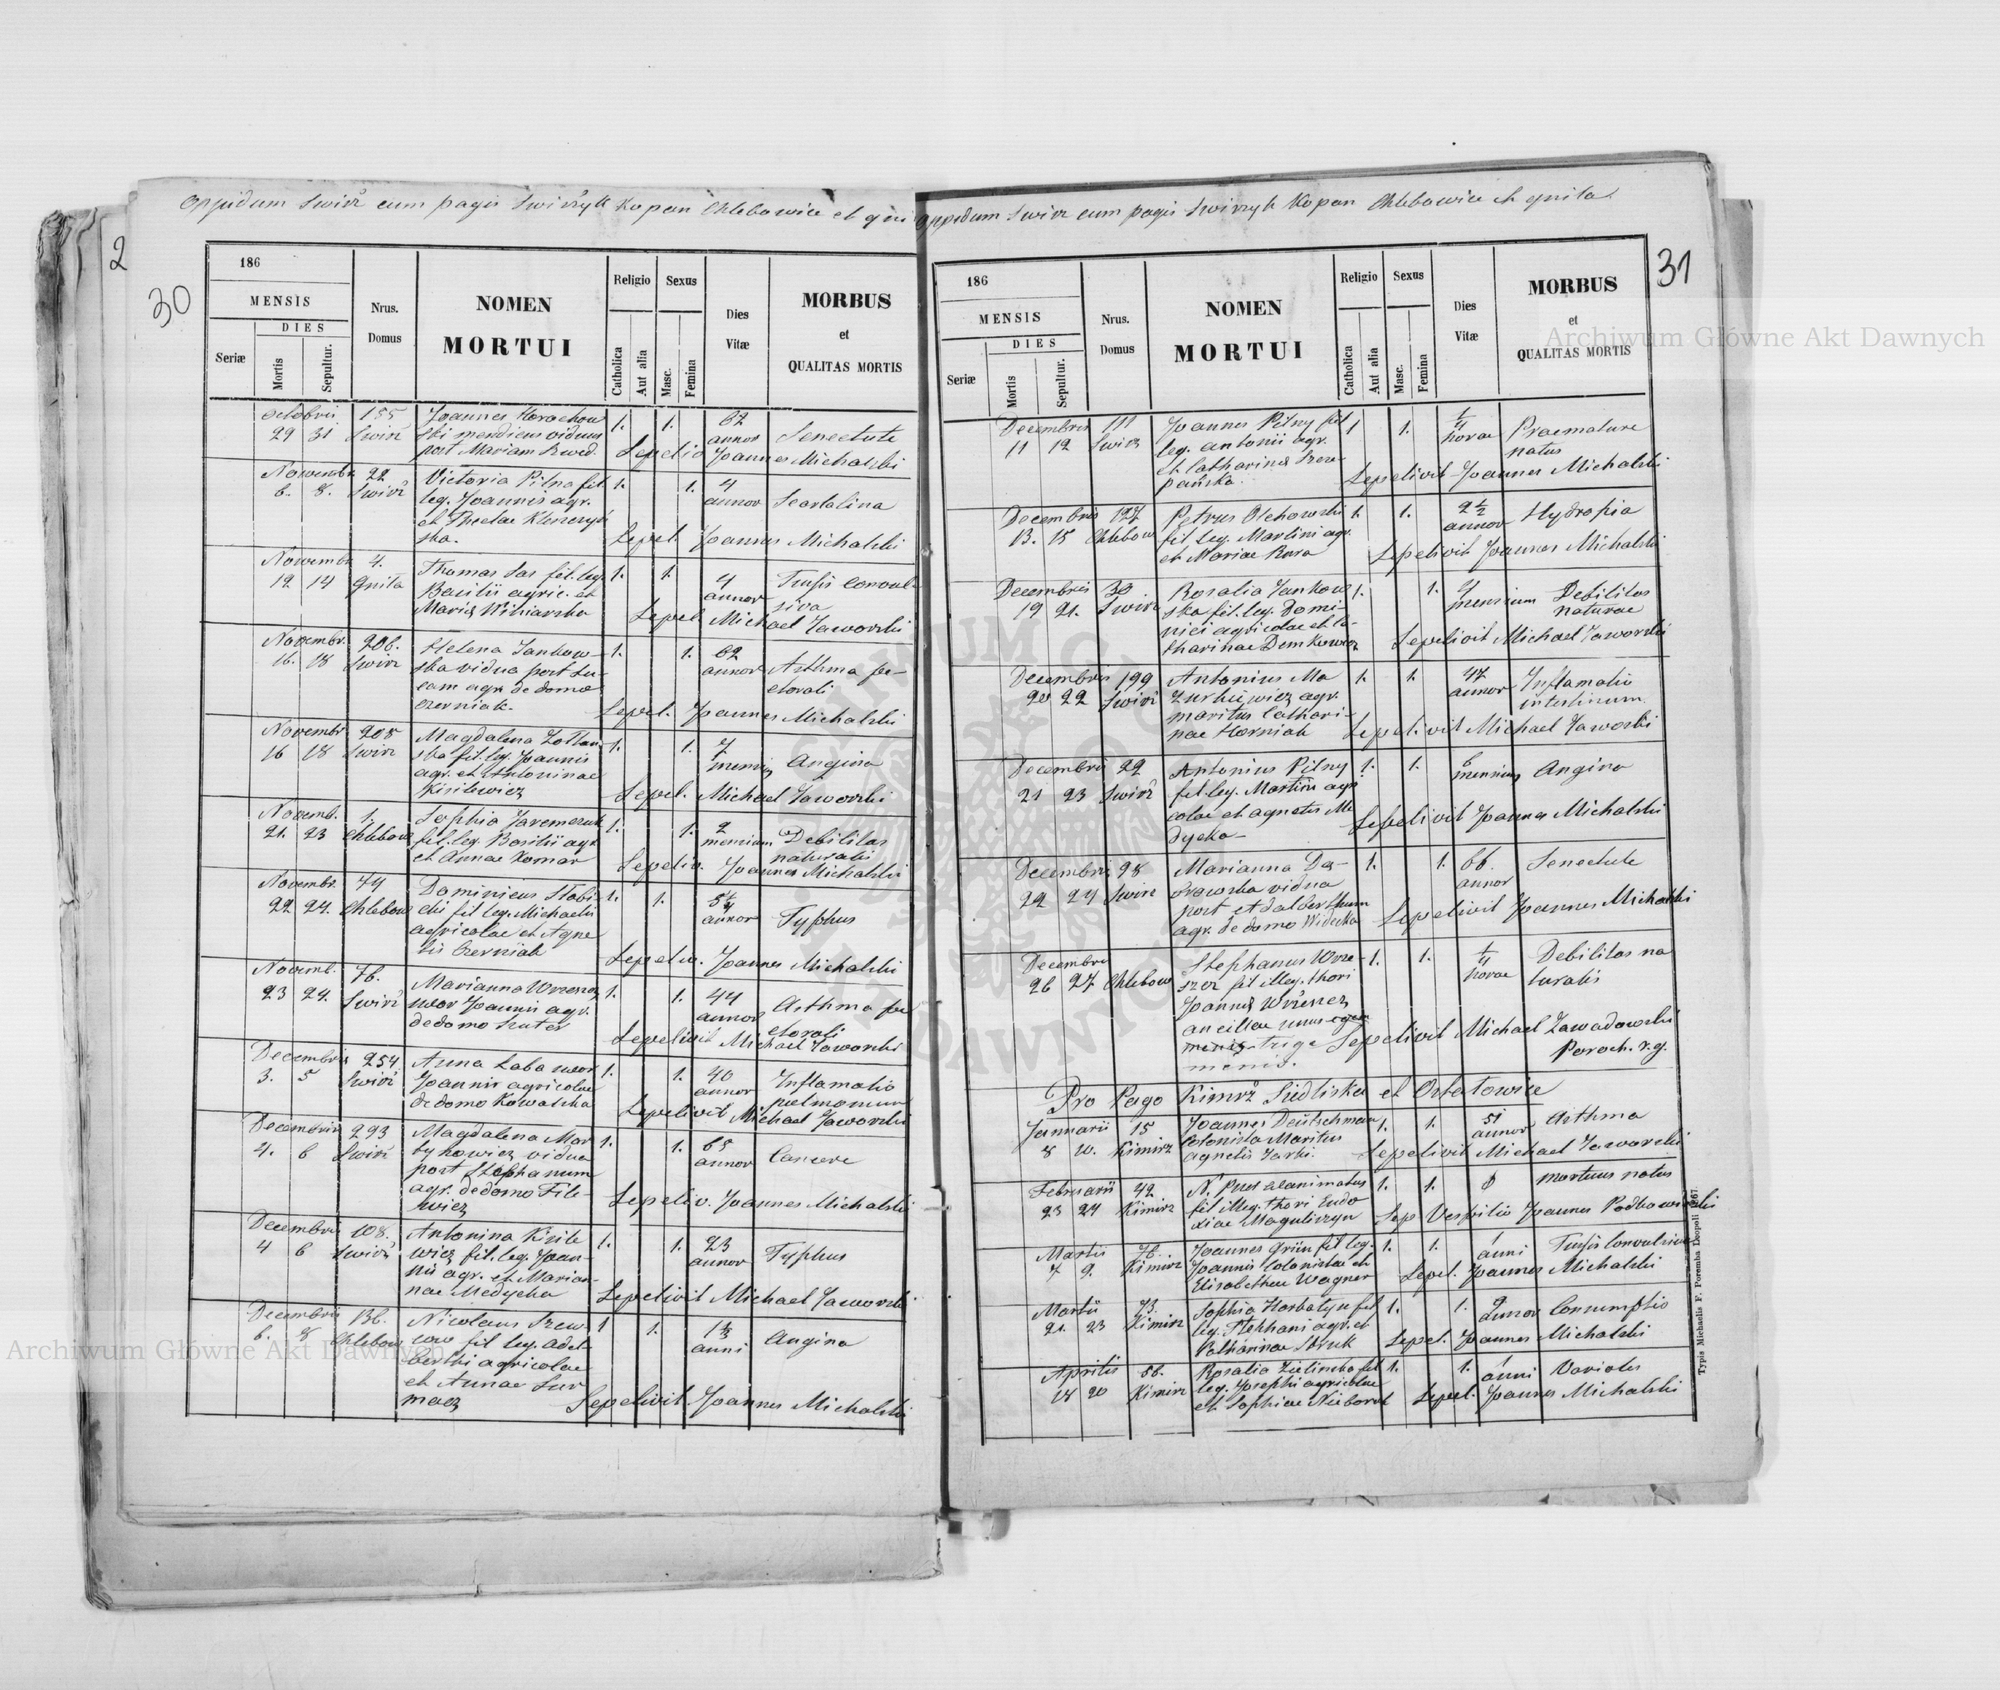 Oppidum Swirz cum pagis Swirzyk Kopan Chlebowice et gni
2
30
186
MENSIS
DIES
Seriæ
Mortis
Sepultur.
Nrus.
Domus
NOMEN
MORTUI
Religio
Catholica
Aut alia
Sexus
Masc.
Femina
Dies
Vitæ
MORBUS
et
QUALITAS MORTIS
Octobris 155 Joannes 1. 1. 62
29 31 Swirz ski mendicus viduus annor Senectute
post Mariam Szwed. Sepeliv Joannes Michalski
Novembr. 22 Victoria Pilna fil 1. 1. 4
6. 8. Swirz leg. Joannis agr. annor Scarlatina
et Theclae
ska. Sepel. Joannes Michalski
Novembr. 4. Thomas Sas fil. leg. 1. 1. 4 Tussis convul-
12 14 Gnita Basilii agric. et annor siva
Maria Winiarska Sepel. Michael Jaworski
Novembr. 206. Helena Jankow- 1. 1. 62
16. 18 Swirz ska vidua post Lu- annor Asthma pe-
cam agr. de domo ctorali
Czerniak. Sepel. Joannes Michalski
Novembr 208 Magdalena 1. 1. 7
16 18 Swirz ska fil. leg. Joannis mensis Angina
agr. et Antoninae
Kisilewicz Sepel. Michael Jaworski
Novemb. 1. Sophia Jaremczuk 1. 1. 2
21. 23 Chlebow fil. leg. Basilii agr. mensium Debilitas
et Annae Komar naturalis
Sepeliv. Joannes Michalski
Novembr. 44 Dominicus 1. 1. 5¼
22 24. Chlebow fil leg. Michaelis annor Typhus
agricolae et Agne
tis Czerniak Sepeliv. Joannes Michalski
Novemb. 76. Marianna Wrzeszcz 1. 1. 44
23 24. Swirz uxor Joannis agr. annor Asthma pe
de domo Szuter ctorali
Sepelivit Michael Jaworski
Decembris 254 Anna Laba uxor 1. 1. 40
3. 5 Swirz Joannis agricolae annor Inflamatio
de domo Kowalska pulmonum
Sepelivit Michael Jaworski
Decembris 293 Magdalena Mar 1. 1. 65
4. 6 Swirz tykowicz vidua annor Cancere
post Stephanum
agr. de domo File-
wicz Sepeliv. Joannes Michalski
Decembris 108. Antonina Kisile 1. 1. 23
4 6 Swirz wicz fil. leg. Joan- annor Typhus
nis agr. et Marian-
nae Medycka Sepelivit Michael Jaworski
Decembris 136. Nicolaus 1 1. 1⅓
6. 8 Chlebow fil leg. Adal anni Angina
berthi agricolae
et Annae Sur
macz Sepelivit. Joannes Michalski
Oppidum Swirz cum pagis Swirzyk Kopan Chlebowice et gnita
31
186
MENSIS
DIES
Seriæ
Mortis
Sepultur.
Nrus.
Domus
NOMEN
MORTUI
Religio
Catholica
Aut alia
Sexus
Masc.
Femina
Dies
Vitæ
MORBUS
et
QUALITAS MORTIS
Decembris 111 Joannes Pilny fil 1 1. ¼
11 12 Swirz leg. Antonii agr. horae Praemature
et Catharina Szcze- natus
pańska. Sepelivit Joannes Michalski
Decembris 127 Petrus Olchowski 1. 1. 2½
13. 15 Chlebow fil leg. Martini agr. annor Hydropia
et Mariae Sepelivit Joannes Michalski
Decembris 30 Rosalia Jankow 1. 1.
19 21. Swirz ska fil. leg. Domi- mensium Debilitas
nici agricolae et Ca- naturae
tharinae Demkowicz Sepelivit Michael Jaworski
Decembris 199 Antonius Ma 1. 1. 47
20 22 Swirz zurkiewicz agr. annor Inflamatio
maritus Cathari- intestinum
nae Horniak Sepelivit Michael Jaworski
Decembris 22 Antonius Pilny 1. 1. 6
21 23 Swirz fil. leg. Martini agri mensium Angina
colae et Agnetis Me
dycka Sepelivit Joannes Michalski
Decembris 98 Marianna 1. 1. 66.
22 24 Swirz vidua annor Senectute
post et Adalberthum
agr. de domo Sepelivit Joannes Michalski
Decembris Stephanus Wrze- 1. 1. ¼
26 27 Chlebow szcz fil illeg. thori horae Debilitas na
Joanna Wrzeszcz turalis
ancillae
Sepelivit Michael Zawadowski
Paroch. r. g.
Pro Pago Kimirz Siedliska et
Januarii 15 Joannes Deutschman 1. 1. 51
8 10. Kimirz colonista Maritus annor Asthma
Agnetis Sepelivit Michael Jaworski
Februarii 42 N. Puer exanimatus 1. 1. mortuus natus
23 24 Kimirz fil illeg. thori Eudo
xiae Sep Vespilio Joannes
Martis 76. Joannes Grün fil leg. 1. 1. 1
7 9. Kimirz Joannis Colonistae et anni Tussis Convulsiva
Elisabethae Wagner Sepel. Joannes Michalski
Martii 73. Sophia Horbatyn fil 1. 1. 9
21. 23 Kimirz leg. Stephani agr. et annor Consumptio
Sepel. Joannes Michalski
Aprilis 56. Rosalia Zielinska fil 1. 1. 1
18 20 Kimirz leg. Josephi agricolae anni Variolis
et Sophiae Sepel. Joannes Michalski
Typis Michaelis F. Poremba Leopoli 1867.
Archiwum Główne Akt Dawnych
Archiwum Główne Akt Dawnych